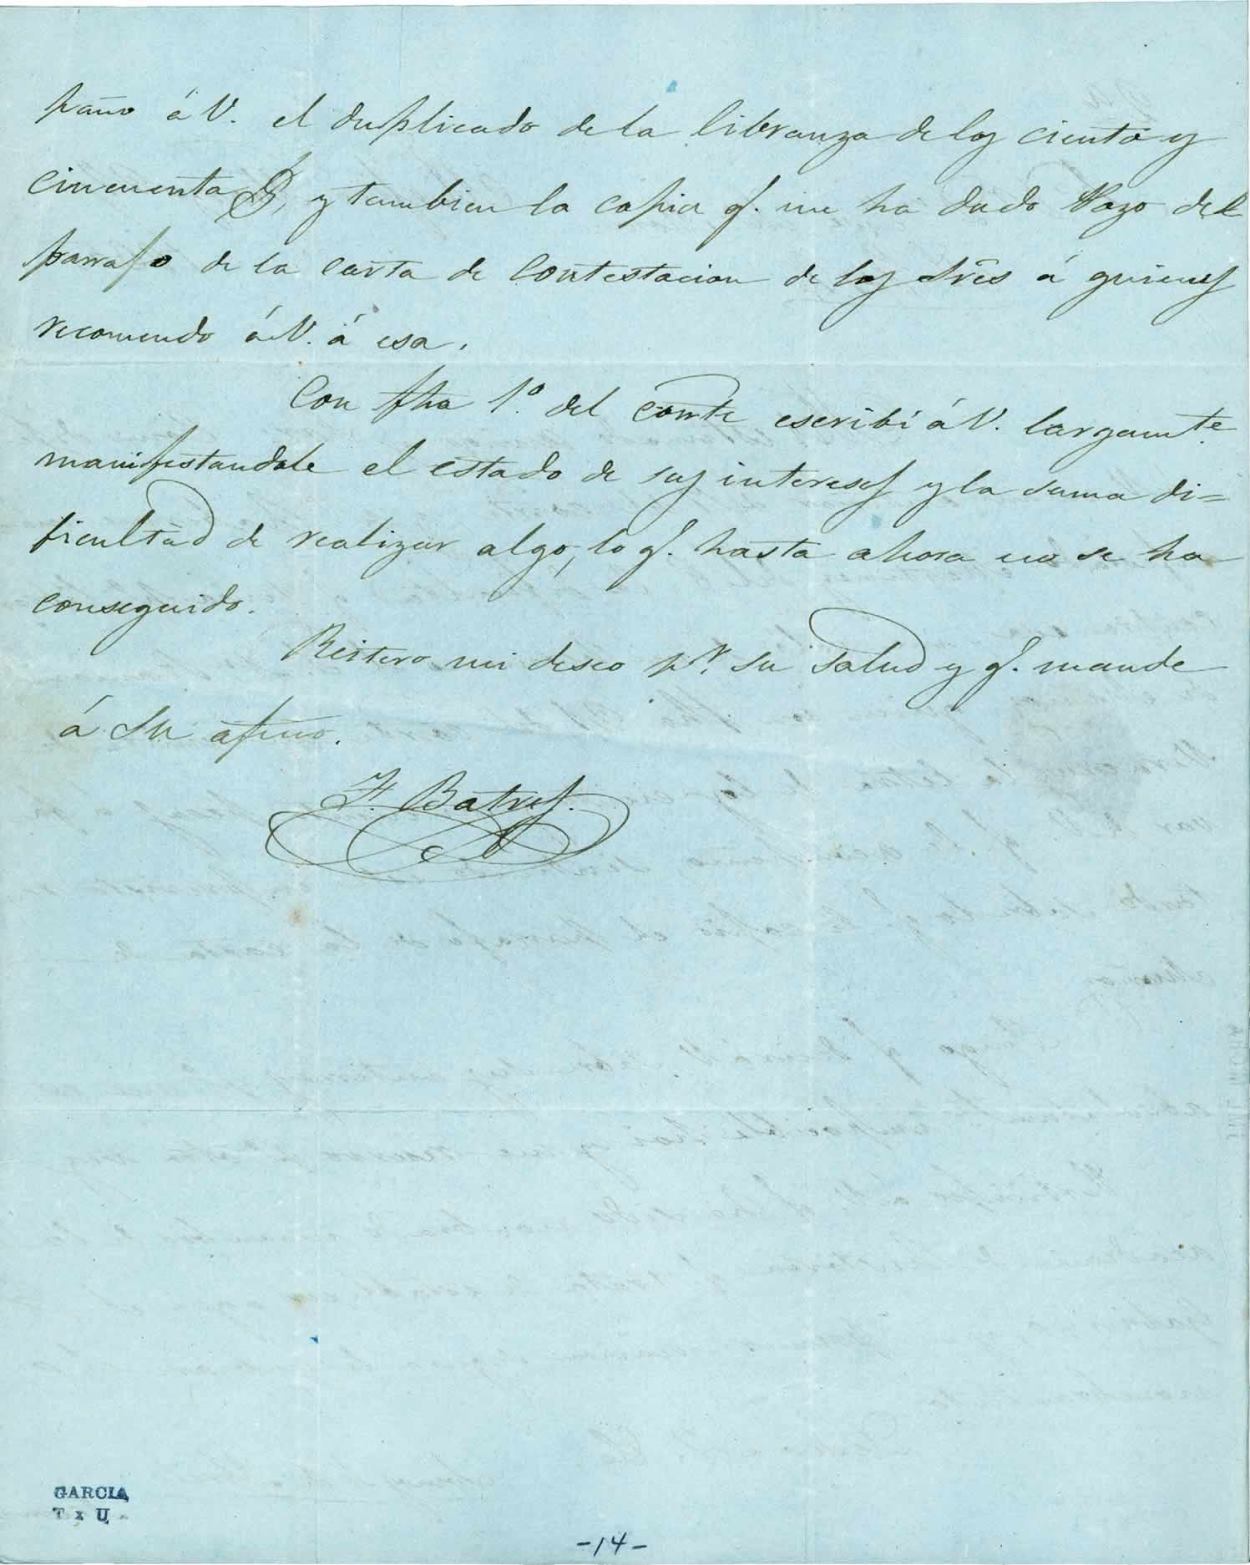 paño á V. el duplicado de la libranza de los ciento y
cincuenta $, y tambien la copia q.e me ha dado Pazo del
parrafo de la carta de contestacion de los Sres á quienes
recomendo á V. á esa.
Con fha 1.o del corrte escribí á V. largamte
manifestandole el estado de sus intereses y la suma di=
ficultad de realizar algo, lo q.e hasta ahora no se ha
conseguido.
Reitero mi deseo p.r su salud y q.e mande
á su afmo.
F. Batres.
GARCIA
T x U
-14-